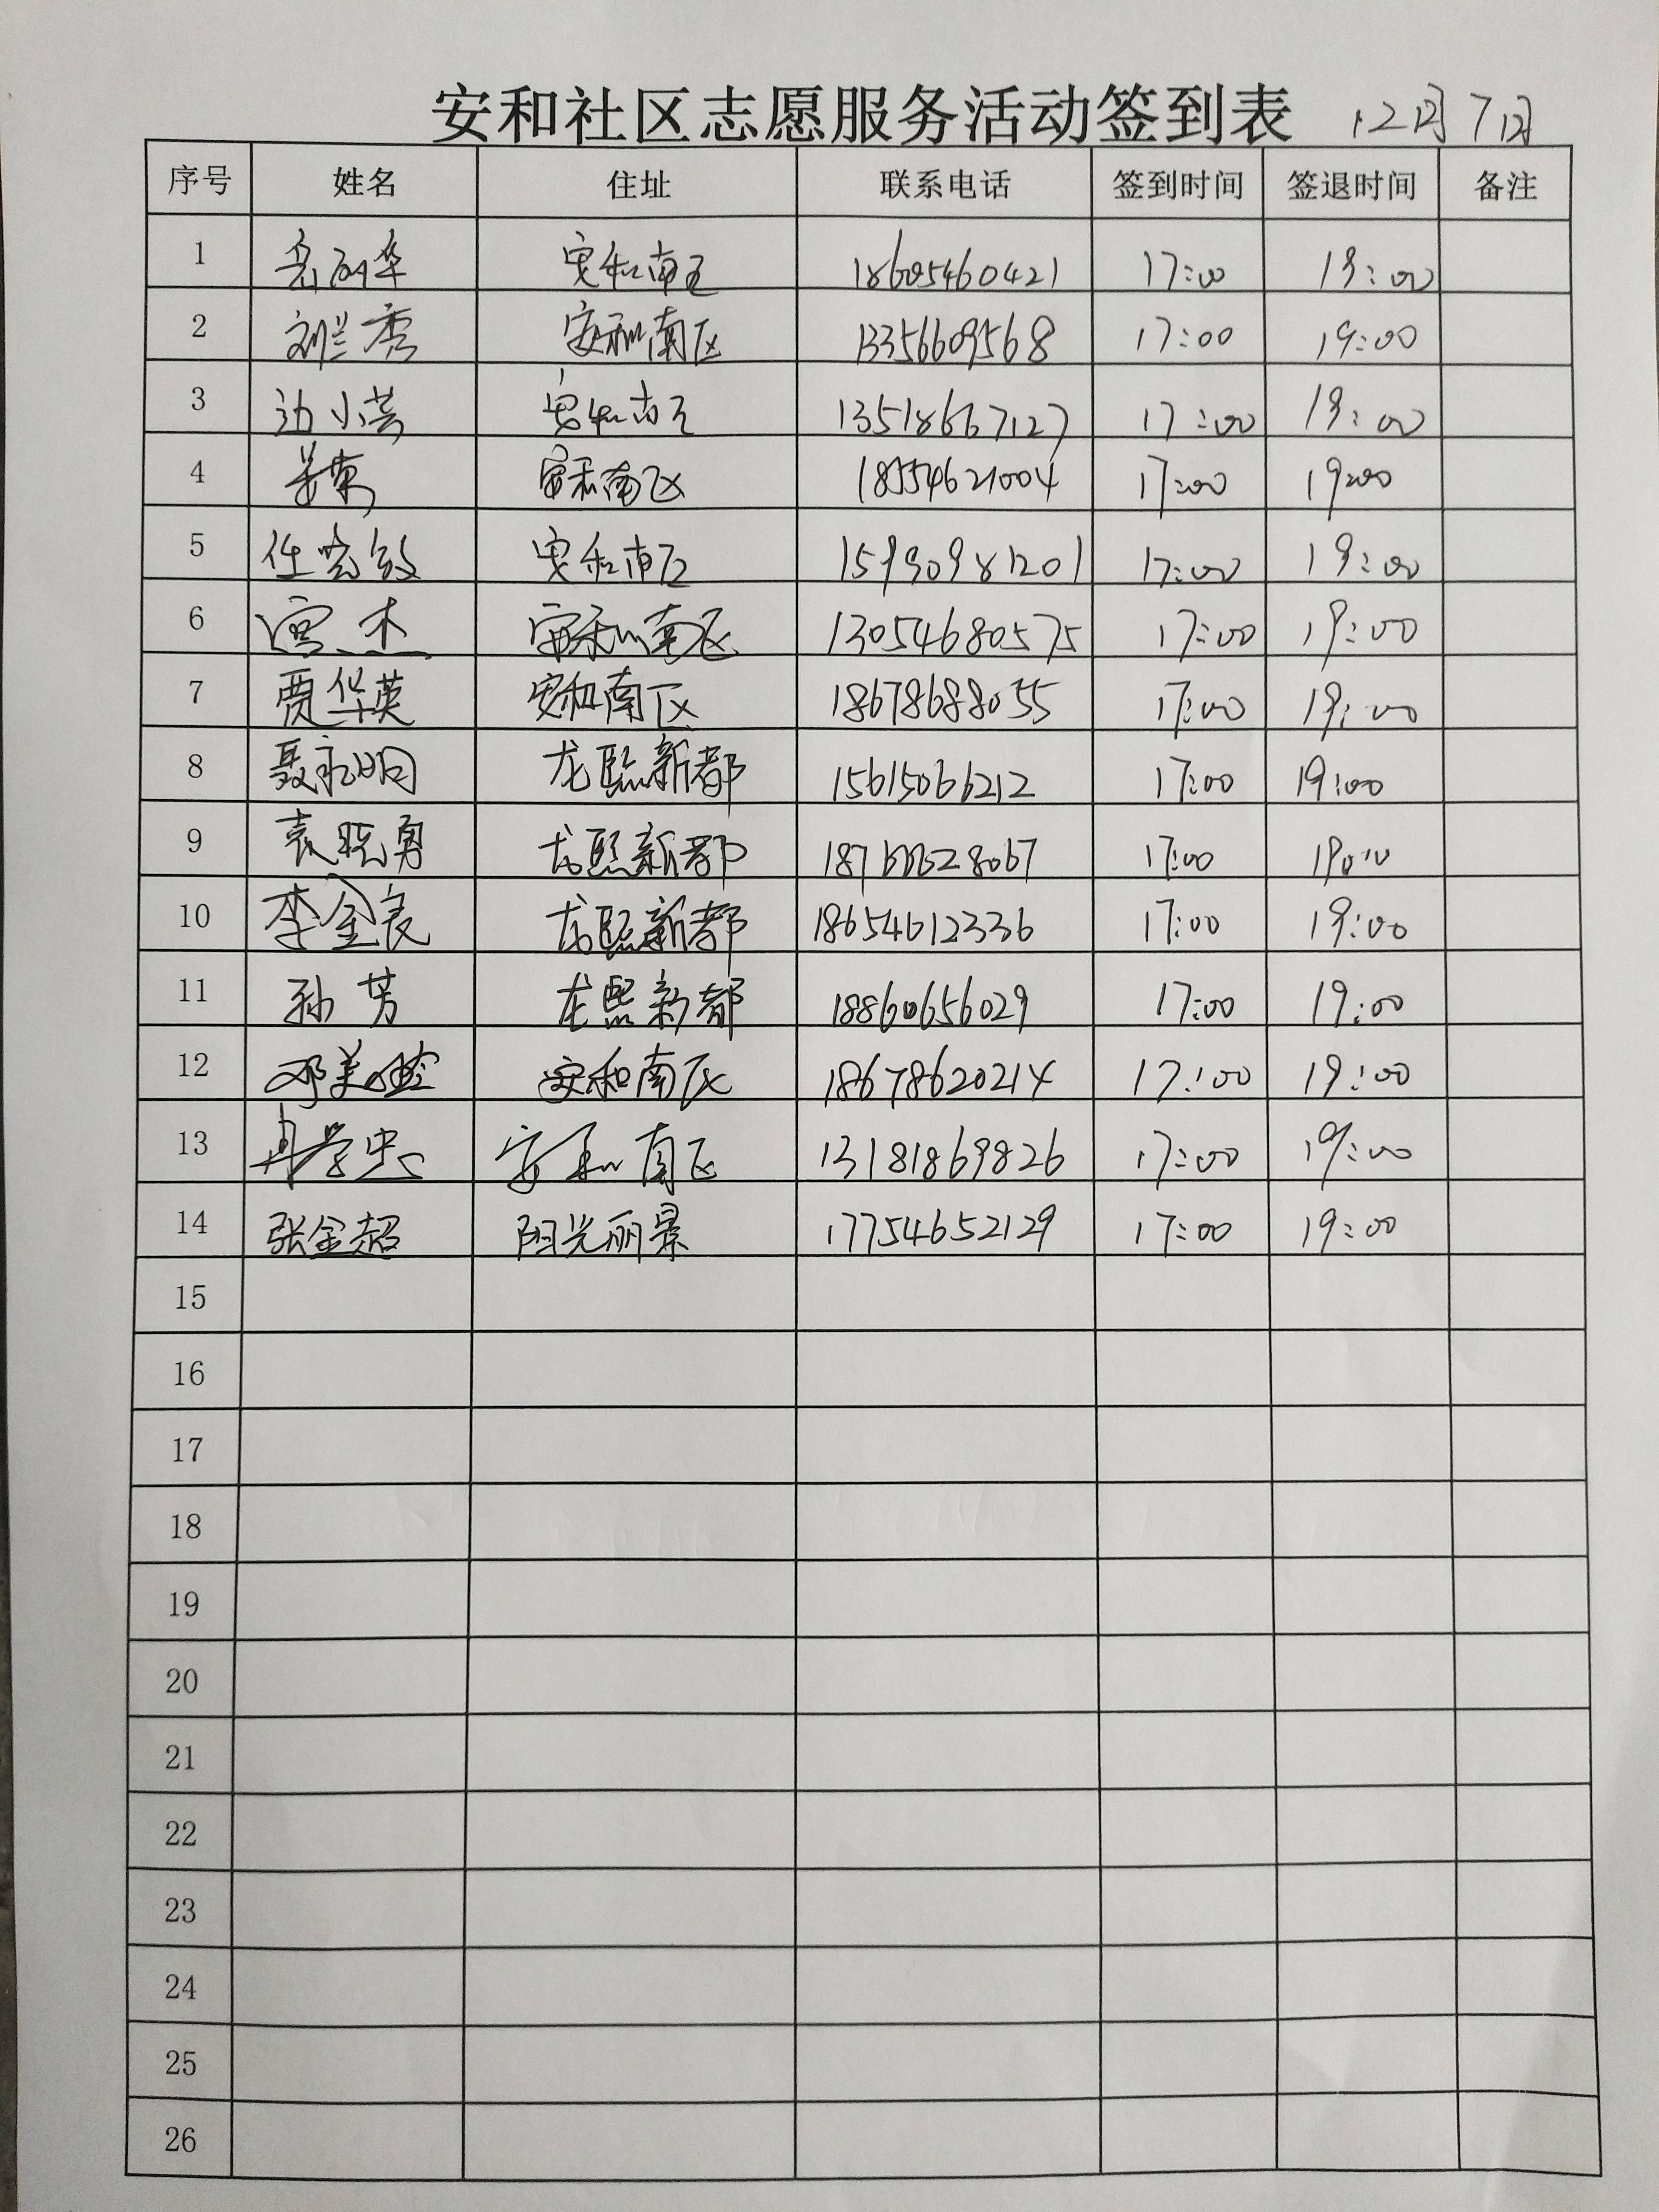 安和社区志愿服务活动签到表 12月7日
序号 姓名 住址 联系电话 签到时间 签退时间 备注
1 安和南区 18605460421 17:00 19:00
2 刘兰秀 安和南区 13356609568 17:00 19:00
3 边小芸 安和南区 13518667127 17:00 19:00
4 安和南区 18554621004 17:00 19:00
5 安和南区 17:00 19:00
6 宫杰 安和南区 13054680575 17:00 19:00
7 贾华英 安和南区 18678688055 17:00 19:00
8 聂永明 龙熙新都 15615066212 17:00 19:00
9 袁晓勇 龙熙新都 17:00 19:00
10 李金良 龙熙新都 18654612336 17:00 19:00
11 孙芳 龙熙新都 18860656029 17:00 19:00
12 邓美玲 安和南区 18678620214 17:00 19:00
13 安和南区 13181869826 17:00 19:00
14 张金超 阳光丽景 17754652129 17:00 19:00
15
16
17
18
19
20
21
22
23
24
25
26